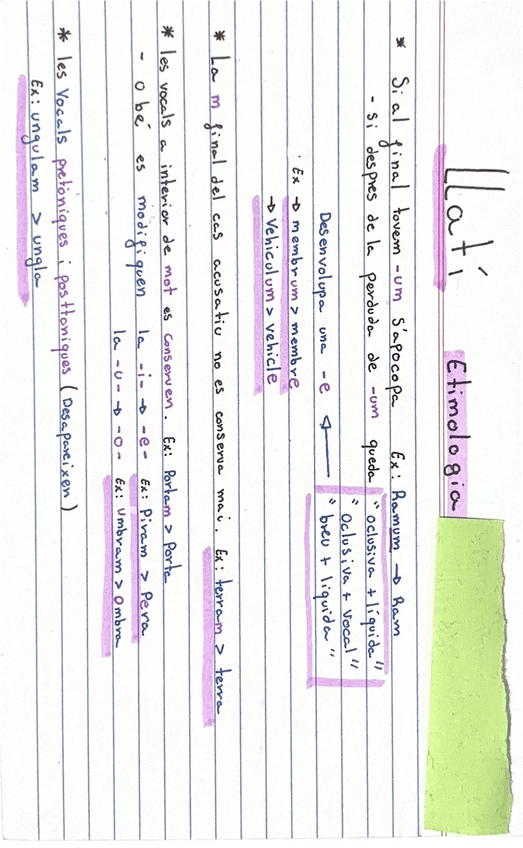 Llatí
Etimologia
* Si al final tovem -um s'apocopa Ex: Ramum → Ram
- Si despres de la perduda de -um queda "oclusiva + líquida"
"oclusiva + vocal"
Desenvolupa una -e ← "breu + liquida"
Ex → membrum > membre
→ Vehiculum > vehicle
* La m final del cas acusatiu no es conserva mai. Ex: terram > terra
* les vocals a interior de mot es conserven. Ex: Portam > Porta
- o bé es modifiquen la -i- → -e- Ex: Piram > Pera
la -u- → -o- Ex: Umbram > Ombra
* les Vocals pretòniques i posttoniques (Desapareixen)
Ex: ungulam > ungla